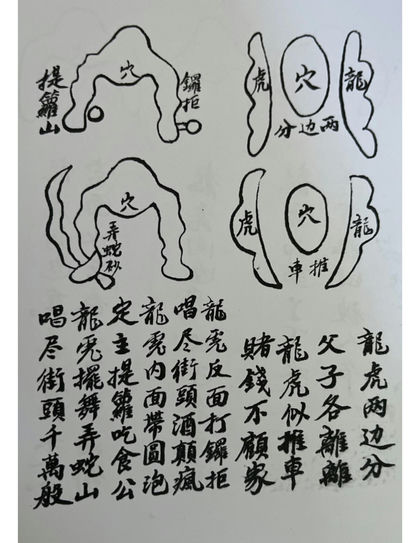 龍
穴
虎
两边分
鑼拒
穴
提籮山
龍
穴
虎
推車
穴
弄蛇砂
龍虎两边分
父子各離離
龍虎似推車
賭錢不顧家
龍虎反面打鑼拒
唱尽街頭酒顛瘋
龍虎內面帶圓泡
定主提籮吃食公
龍虎擺舞弄蛇山
唱尽街頭千萬般